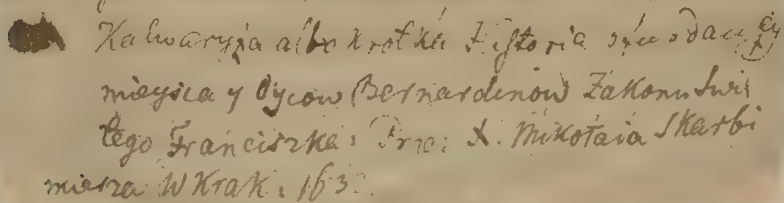 Kalwaryja albo krotka Historia
mieysca y Oycow Bernardinow Zakonu Swię
tego Franciszka: Przez X. Mikołaia Skarbi
miesza W Krak: 163